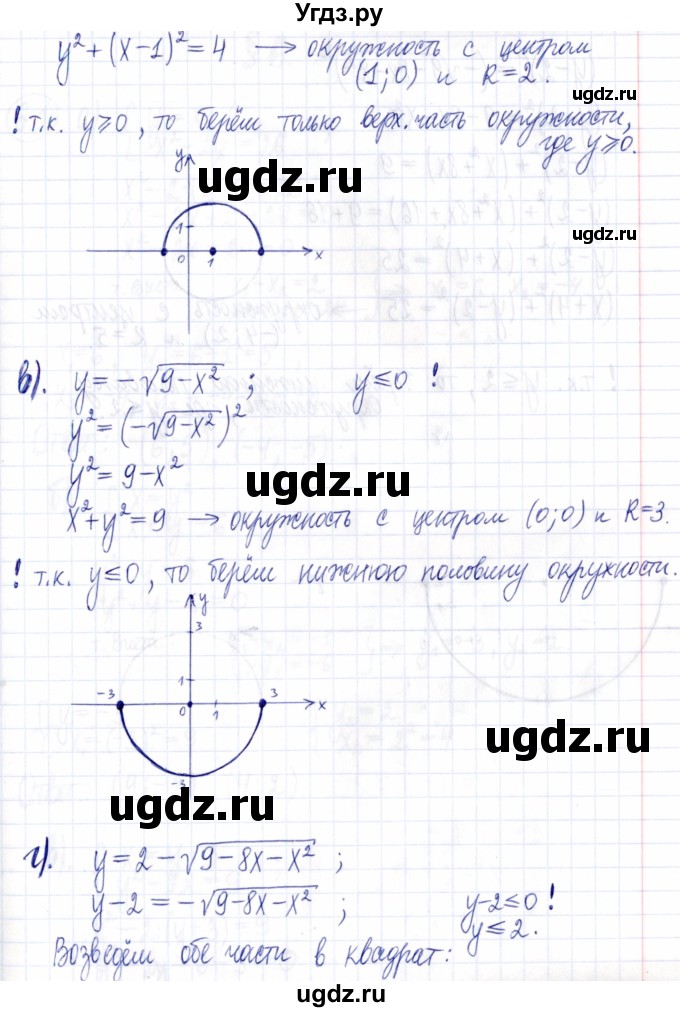 Угдз.ру
y² + (x-1)² = 4 → окружность с центром
(1;0) и R=2.
! т.к. y⩾0, то берём только верх. часть окружности,
где y⩾0.
y
ugdz.ru
ugdz.ru
1
0 1 x
в). y = -√(9-x²) ; y⩽0 !
y² = (-√(9-x²))²
y² = 9-x²
ugdz.ru
x²+y²=9 → окружность с центром (0;0) и R=3.
! т.к. y⩽0, то берём нижнюю половину окружности.
y
3
1
-3 3
0 1 x
ugdz.ru
-3
ugdz.ru
г). y = 2 - √(9-8x-x²) ;
y-2 = -√(9-8x-x²) ; y-2⩽0 !
y⩽2.
Возведём обе части в квадрат:
ugdz.ru